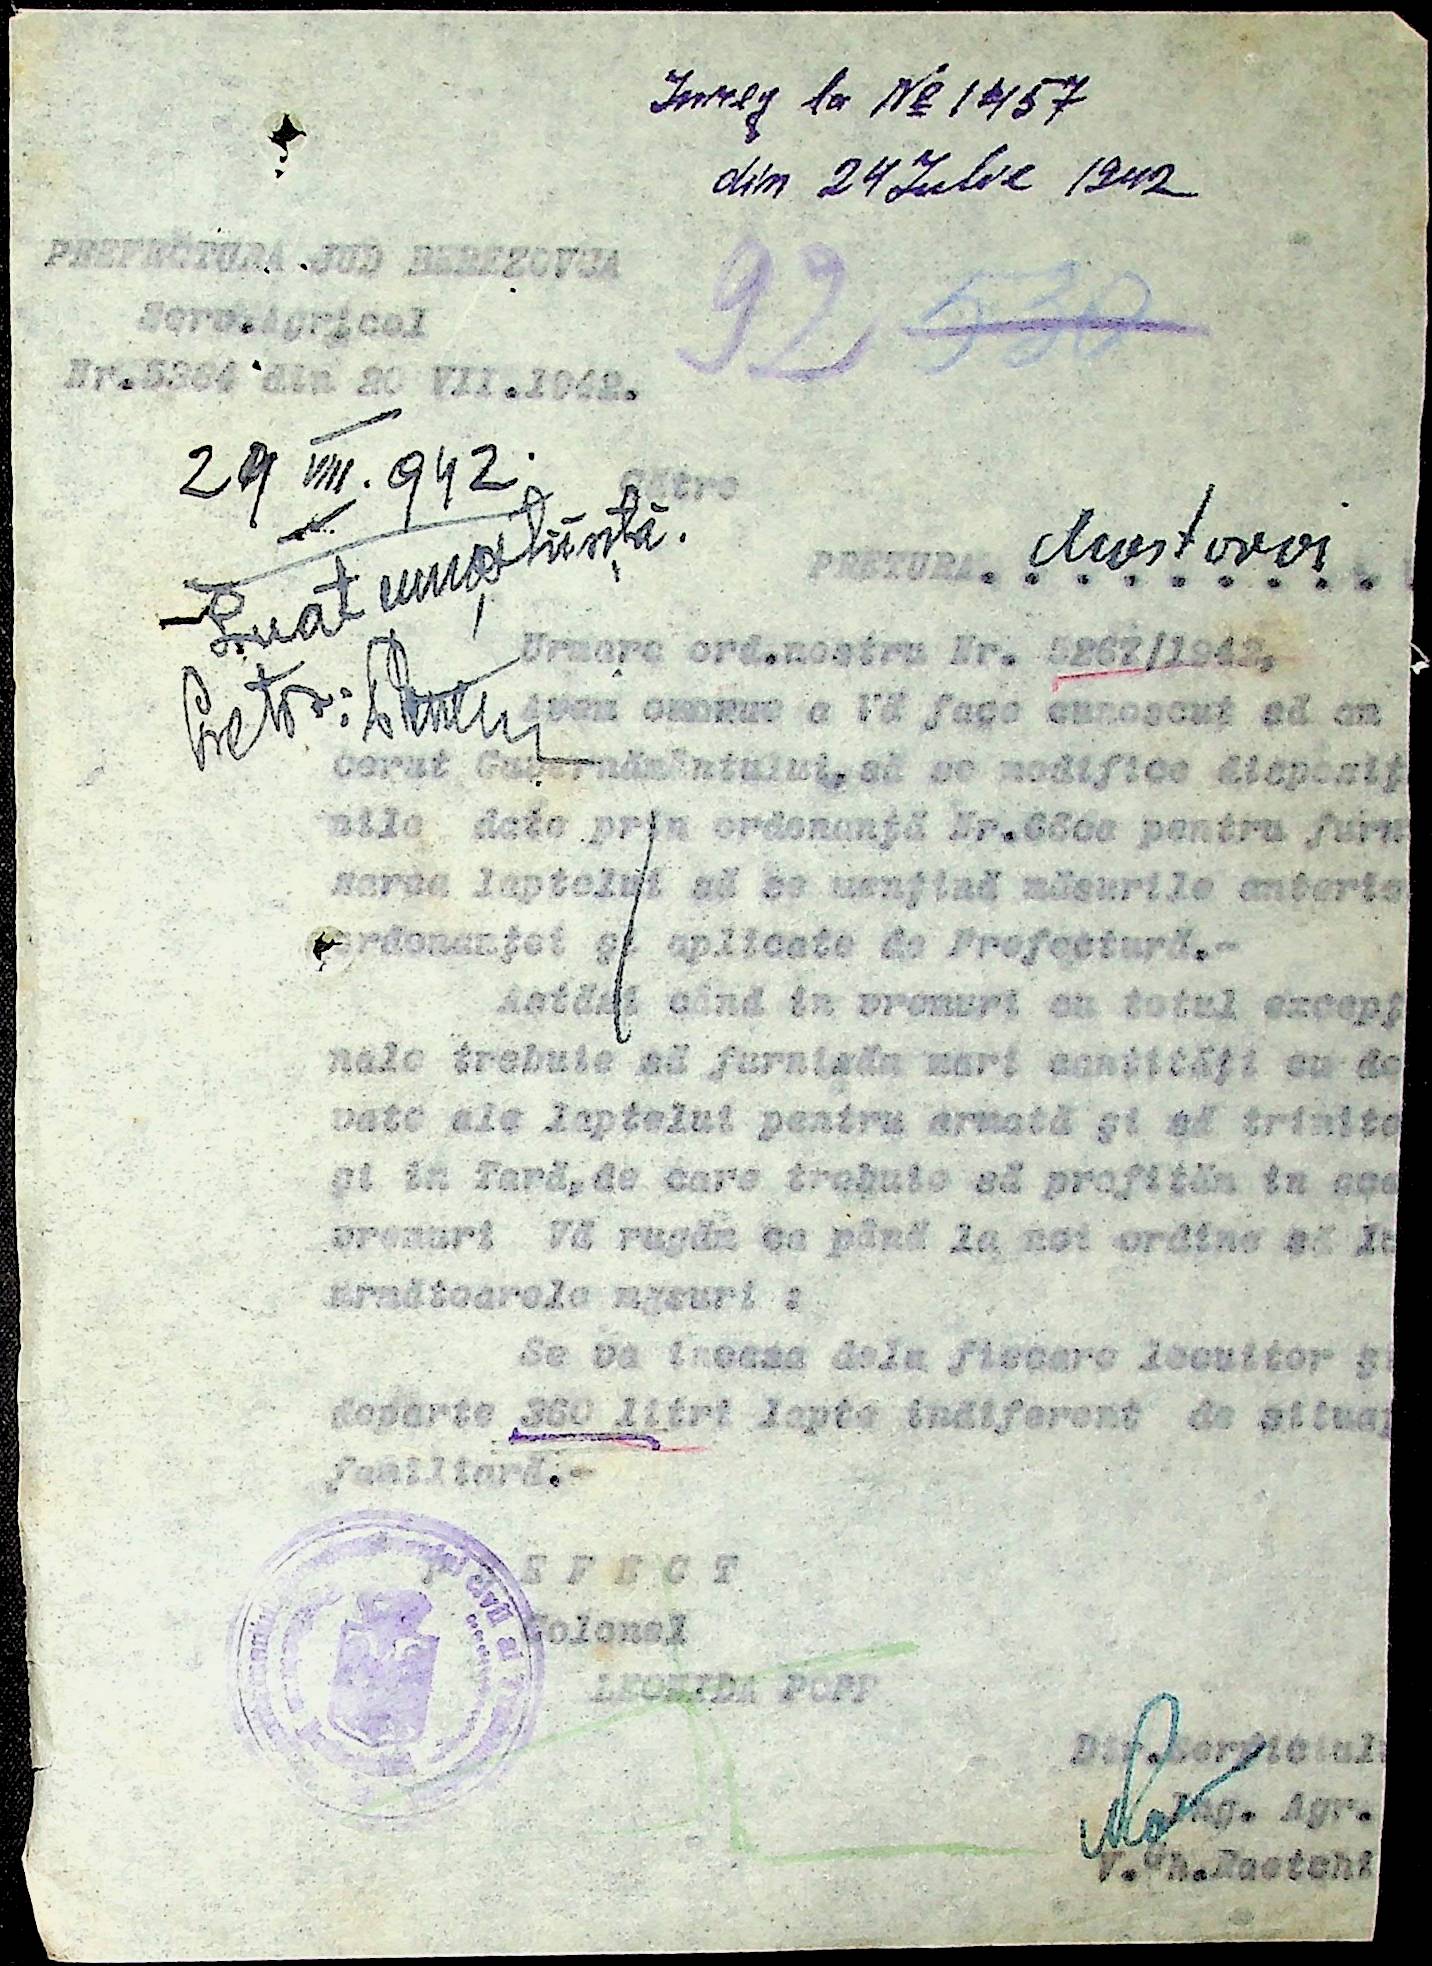 Inreg la № 1457
din 24 Iulie 1942
PREFECTURA JUD BEREZOVCA
Serv.Agricol
Nr.5364 din 20 VII.1942.
92 530
29 VIII.942.
Către
Luat cunoștiință.
Mostovoi
PRETURA.
Pretor:
Urmare ord.nostru Nr. 5267/1942,
Avem onoare a Vă face cunoscut că am
cerut Guvernământului, să se modifice dispoziți
nile date prin ordonanță Nr. pentru furn
sarea laptelui să se menție măsurile anterio
ordonanței și aplicate de Prefectură.-
Astăzi când in vremuri cu totul excepț
nale trebuie să furnisăm mari cantități cu de
vate ale laptelui pentru armată și să trimite
și in Tară, de care trebuie să profităm in ace
vremuri Vă rugăm ca până la noi ordine să lu
următoarele măsuri :
Se va incasa dela fiecare locuitor și
departe 360 litri lapte indiferent de situaț
familiară.-
P R E F E C T
Colonel
LEONIDA POPP
Dir.Serviciul
Ing. Agr.
V.Gh.